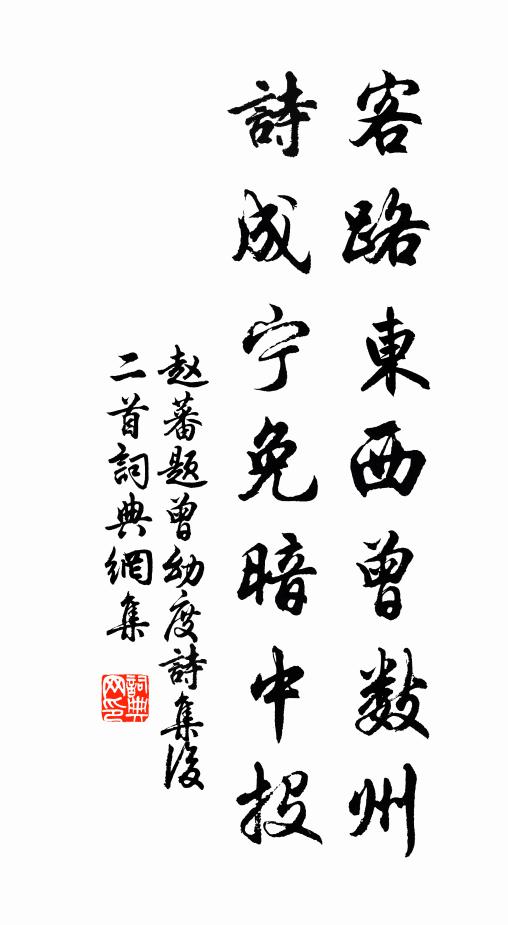 客路東西曾数州
詩成宁免暗中投
赵蕃题曾幼度詩集後
二首詞典網集
詞典
网印